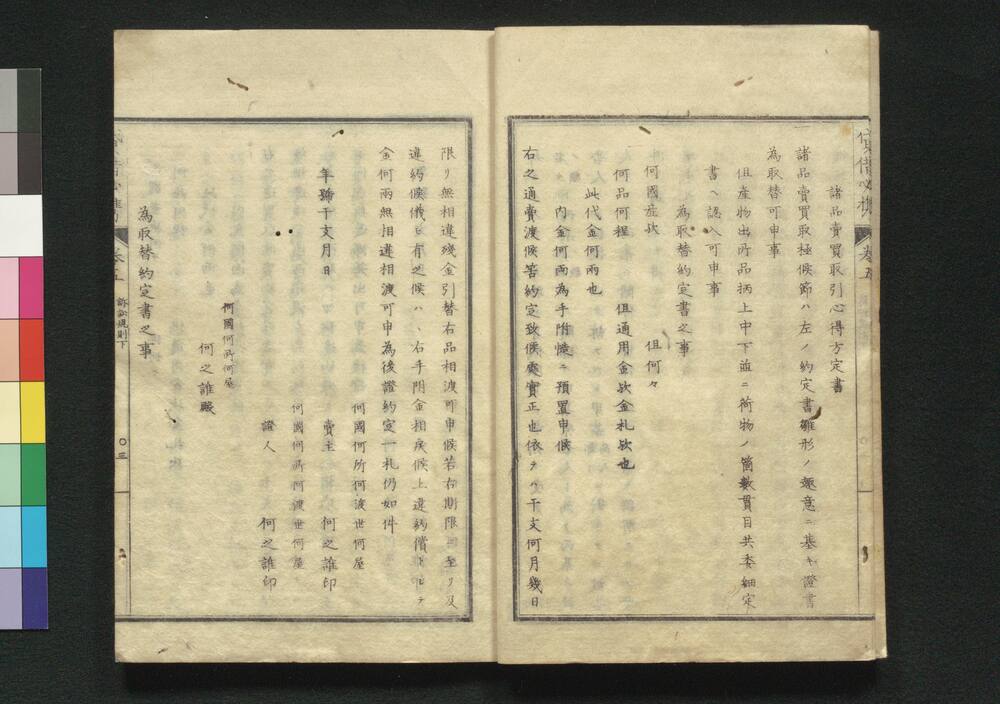 諸品賣買取引心得方定書
一諸品賣買取極候節ハ左ノ約定書雛形ノ趣意ニ基キ證書
為取替可申事
但産物出所品柄上中下並ニ荷物ノ箇數貫目共委細定
書ヘ認入可申事
為取替約定書之事
何國産欤 但何々
何品何程 但通用金欤金札欤也
此代金何兩也
内金何兩為手附慥ニ預置申候
右之通賣渡候筈約定致候處實正也依テハ干支何月幾日
限リ無相違殘金引替右品相渡可申候若右期限ニ至リ及
違約候儀
有之候ハヽ右手附金相戻候上違約償トシテ
金何兩無相違相渡可申為後證約定一札仍如件
何國何所何渡世何屋
年號干支月日 賣主 何之誰印
何國何所何渡世何屋
證人 何之誰印
何國何所何屋
何之誰殿
為取替約定書之事
卷五 訴訟規則下
〇三